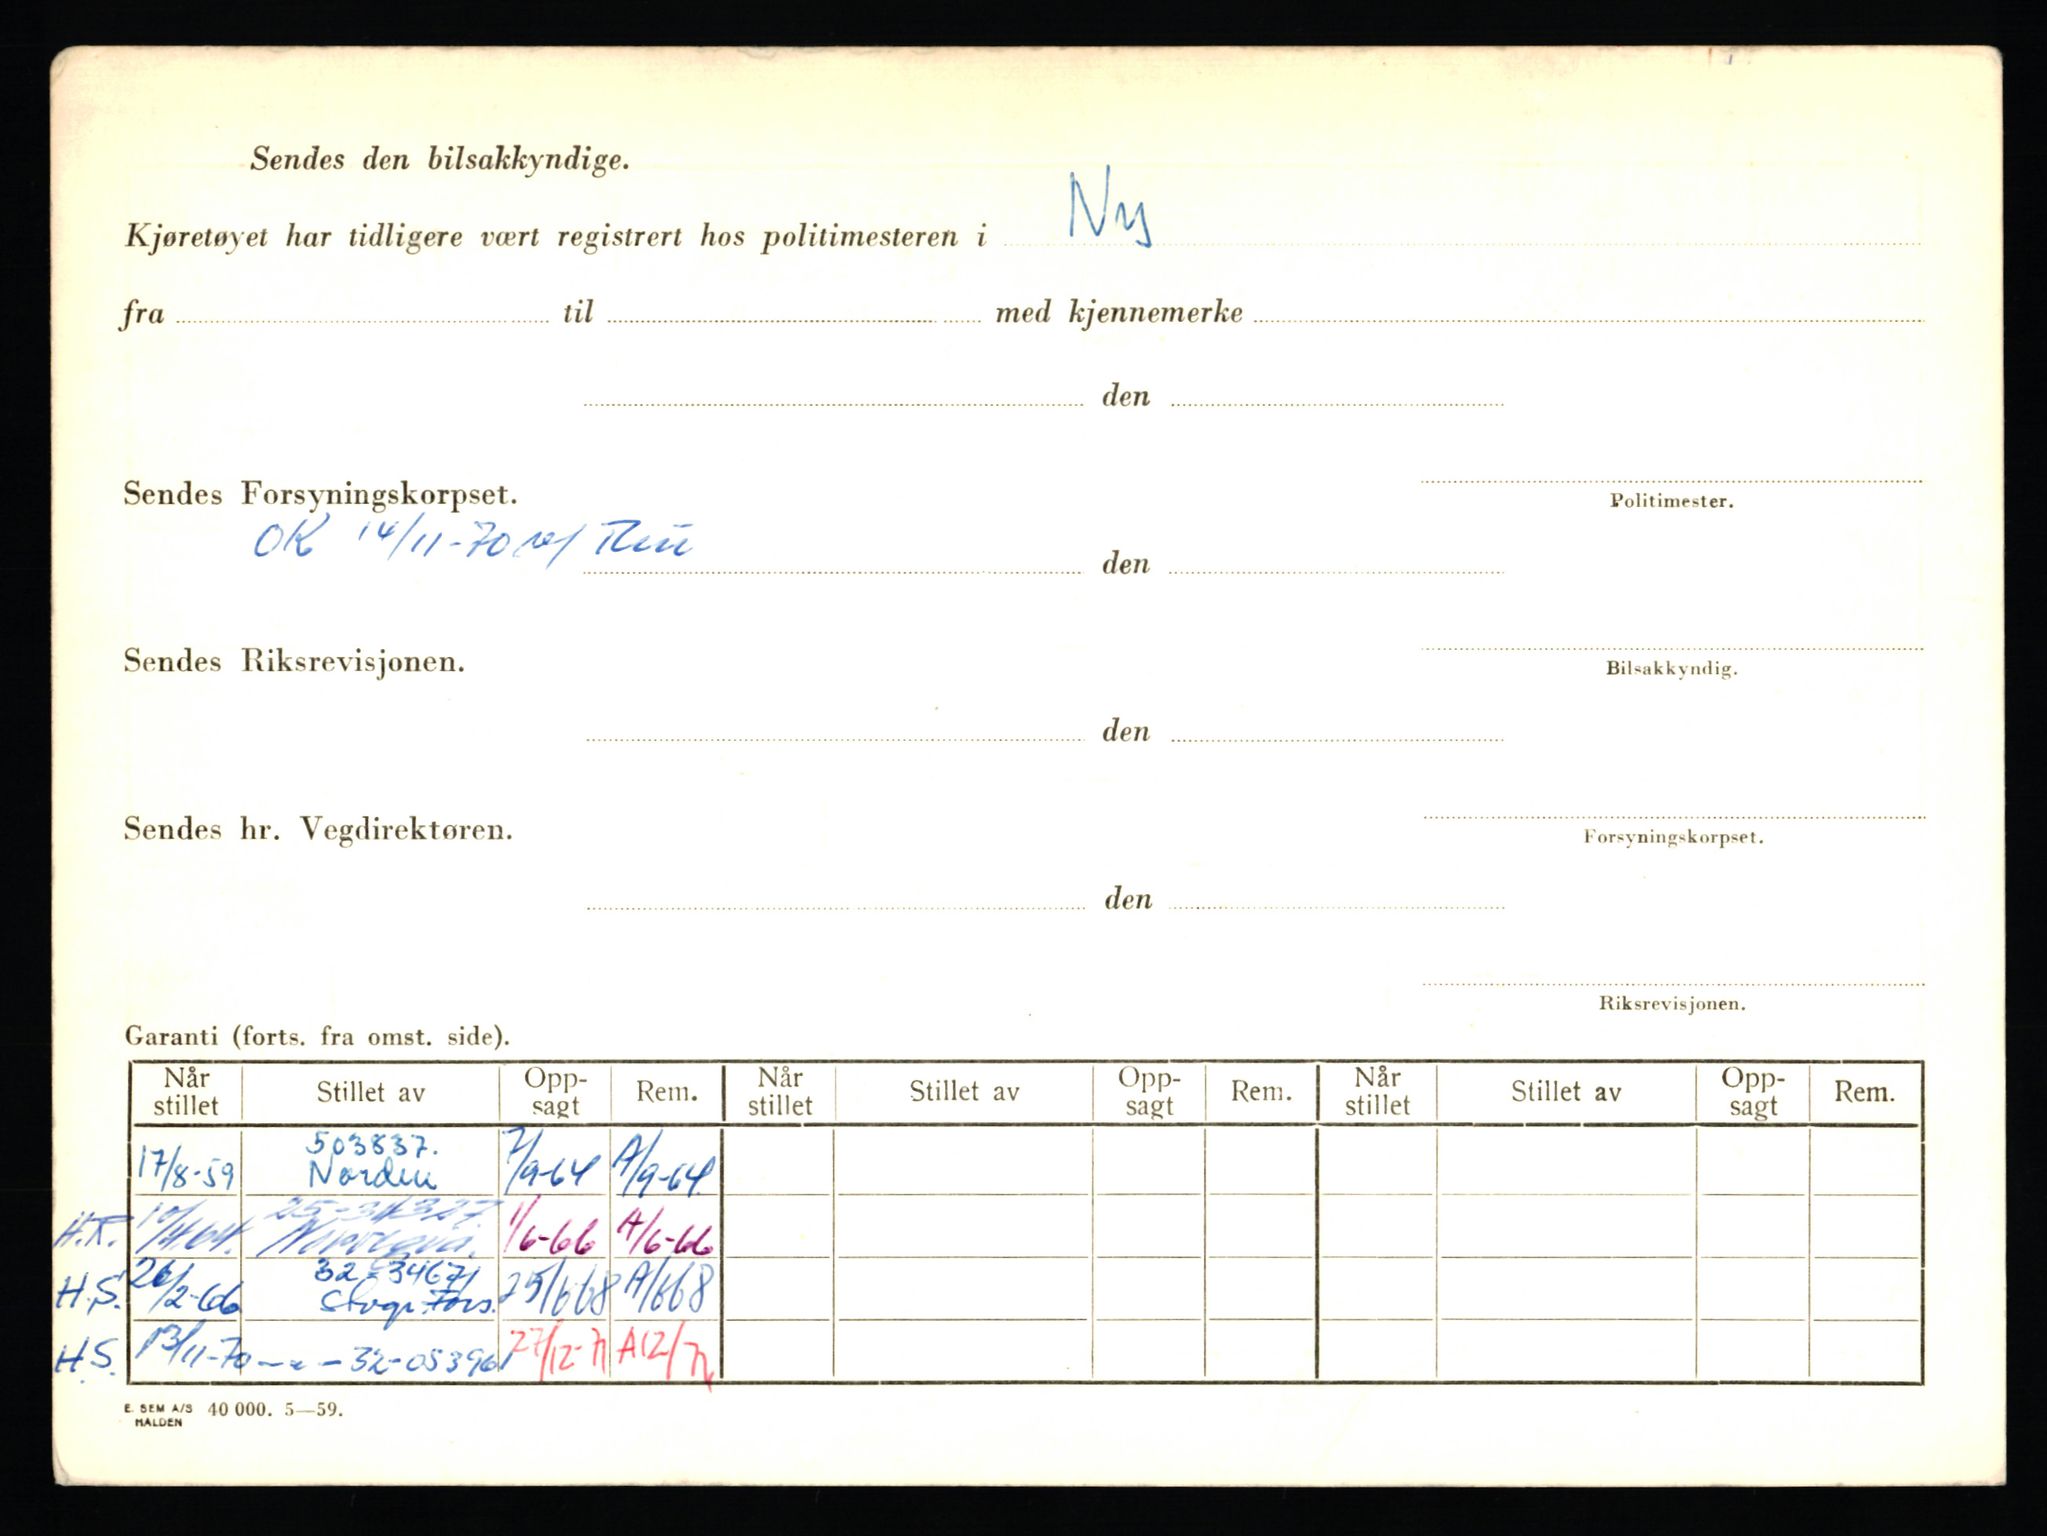 Sendes den bilsakkyndige.
Kjøretøyet har tidligere vært registrert hos politimesteren i Ny
fra til med kjennemerke
den
Sendes Forsyningskorpset.
Politimester.
OK 14/11-70
den
Sendes Riksrevisjonen.
Bilsakkyndig.
den
Sendes hr. Vegdirektøren.
Forsyningskorpset.
den
Riksrevisjonen.
Garanti (forts. fra omst. side).
Når stillet Stillet av Opp-sagt Rem. Når stillet Stillet av Opp-sagt Rem. Når stillet Stillet av Opp-sagt Rem.
503837.
17/8-59 Norden 7/9-64 A/9-64
25-34327.
H.K. 10/4.64. Norvegia. 1/6-66 A/6-66
32-34671
H.S. 26/2-66 Stvgr. Fors. 25/6 68 A/6 68
H.S. 13/11-70 — " — 32-05396 27/12-71 A12/71
E. SEM A/S HALDEN 40 000. 5—59.